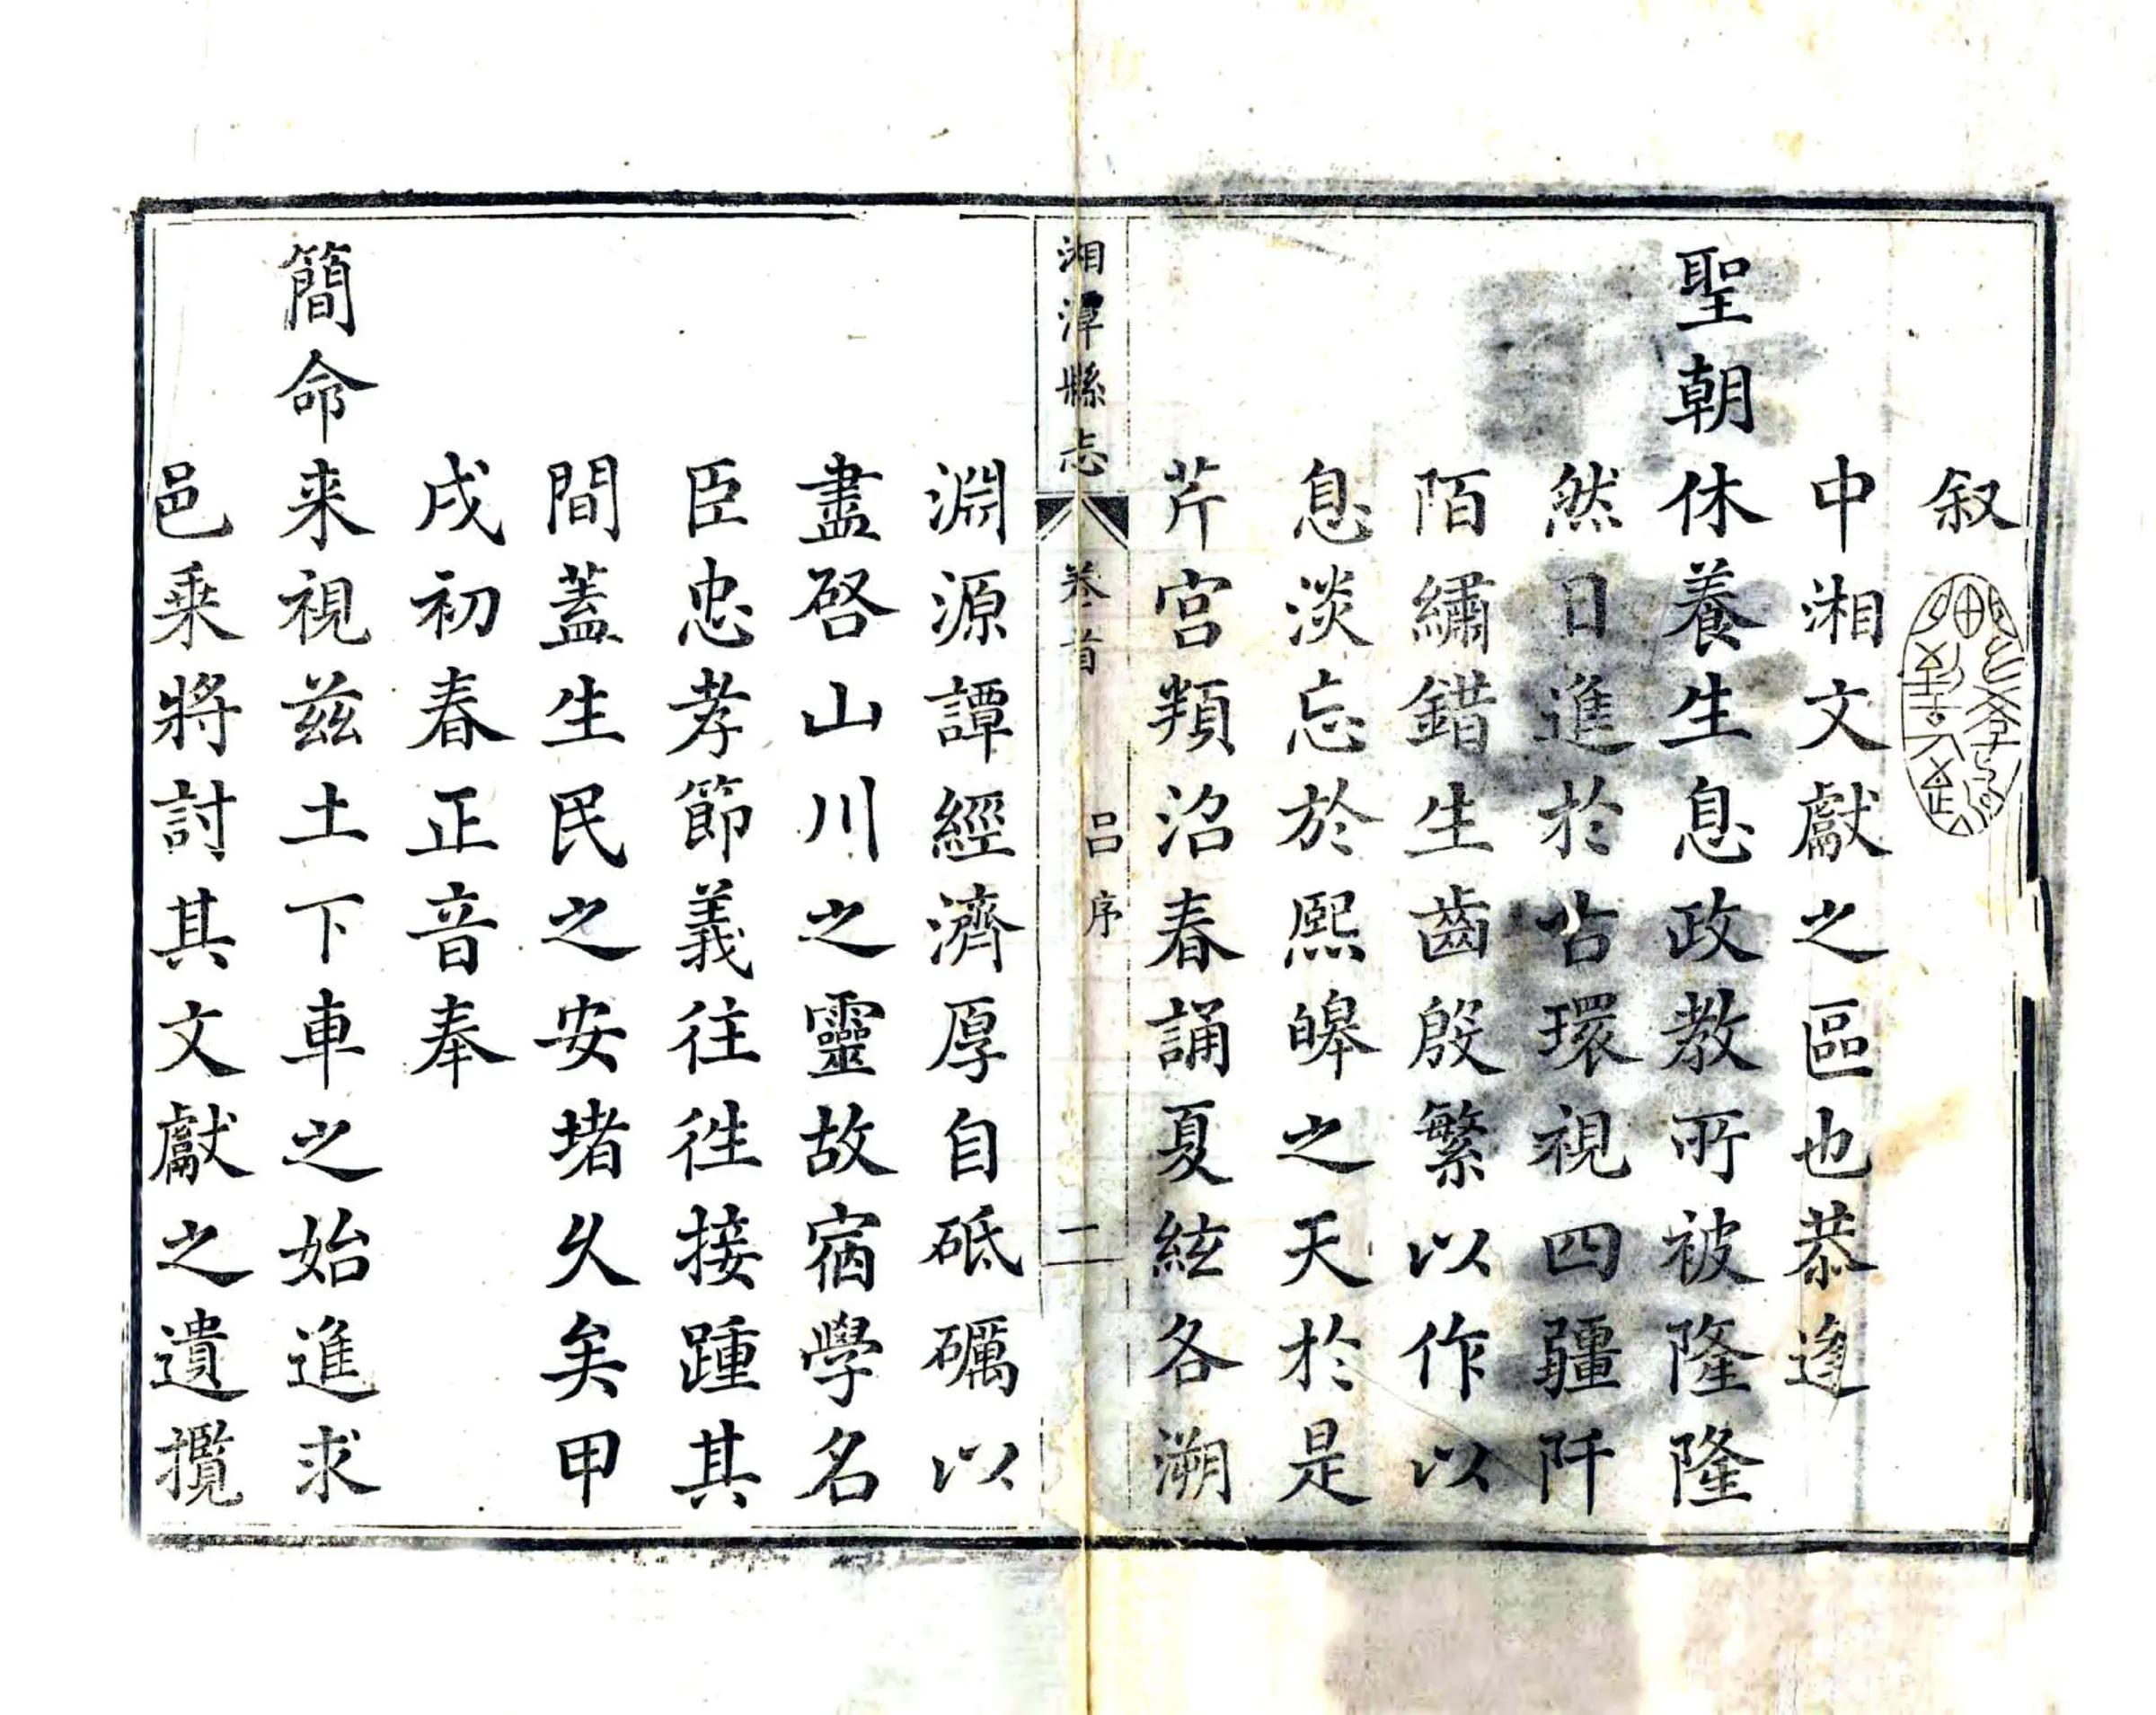 叙
中湘文獻之區也恭逢
聖朝休養生息政教所被隆隆
然日進於古環視四疆阡
陌繡錯生齒殷繁以作以
息淡忘於熙皞之天於是
芹宮頖沼春誦夏絃各溯
湘潭縣志 卷首 呂序 二
淵源譚經濟厚自砥礪以
盡啓山川之靈故宿學名
臣忠孝節義往徃接踵其
間蓋生民之安堵久矣甲
戌初春正音奉
簡命来視兹土下車之始進求
邑乘將討其文獻之遺攬